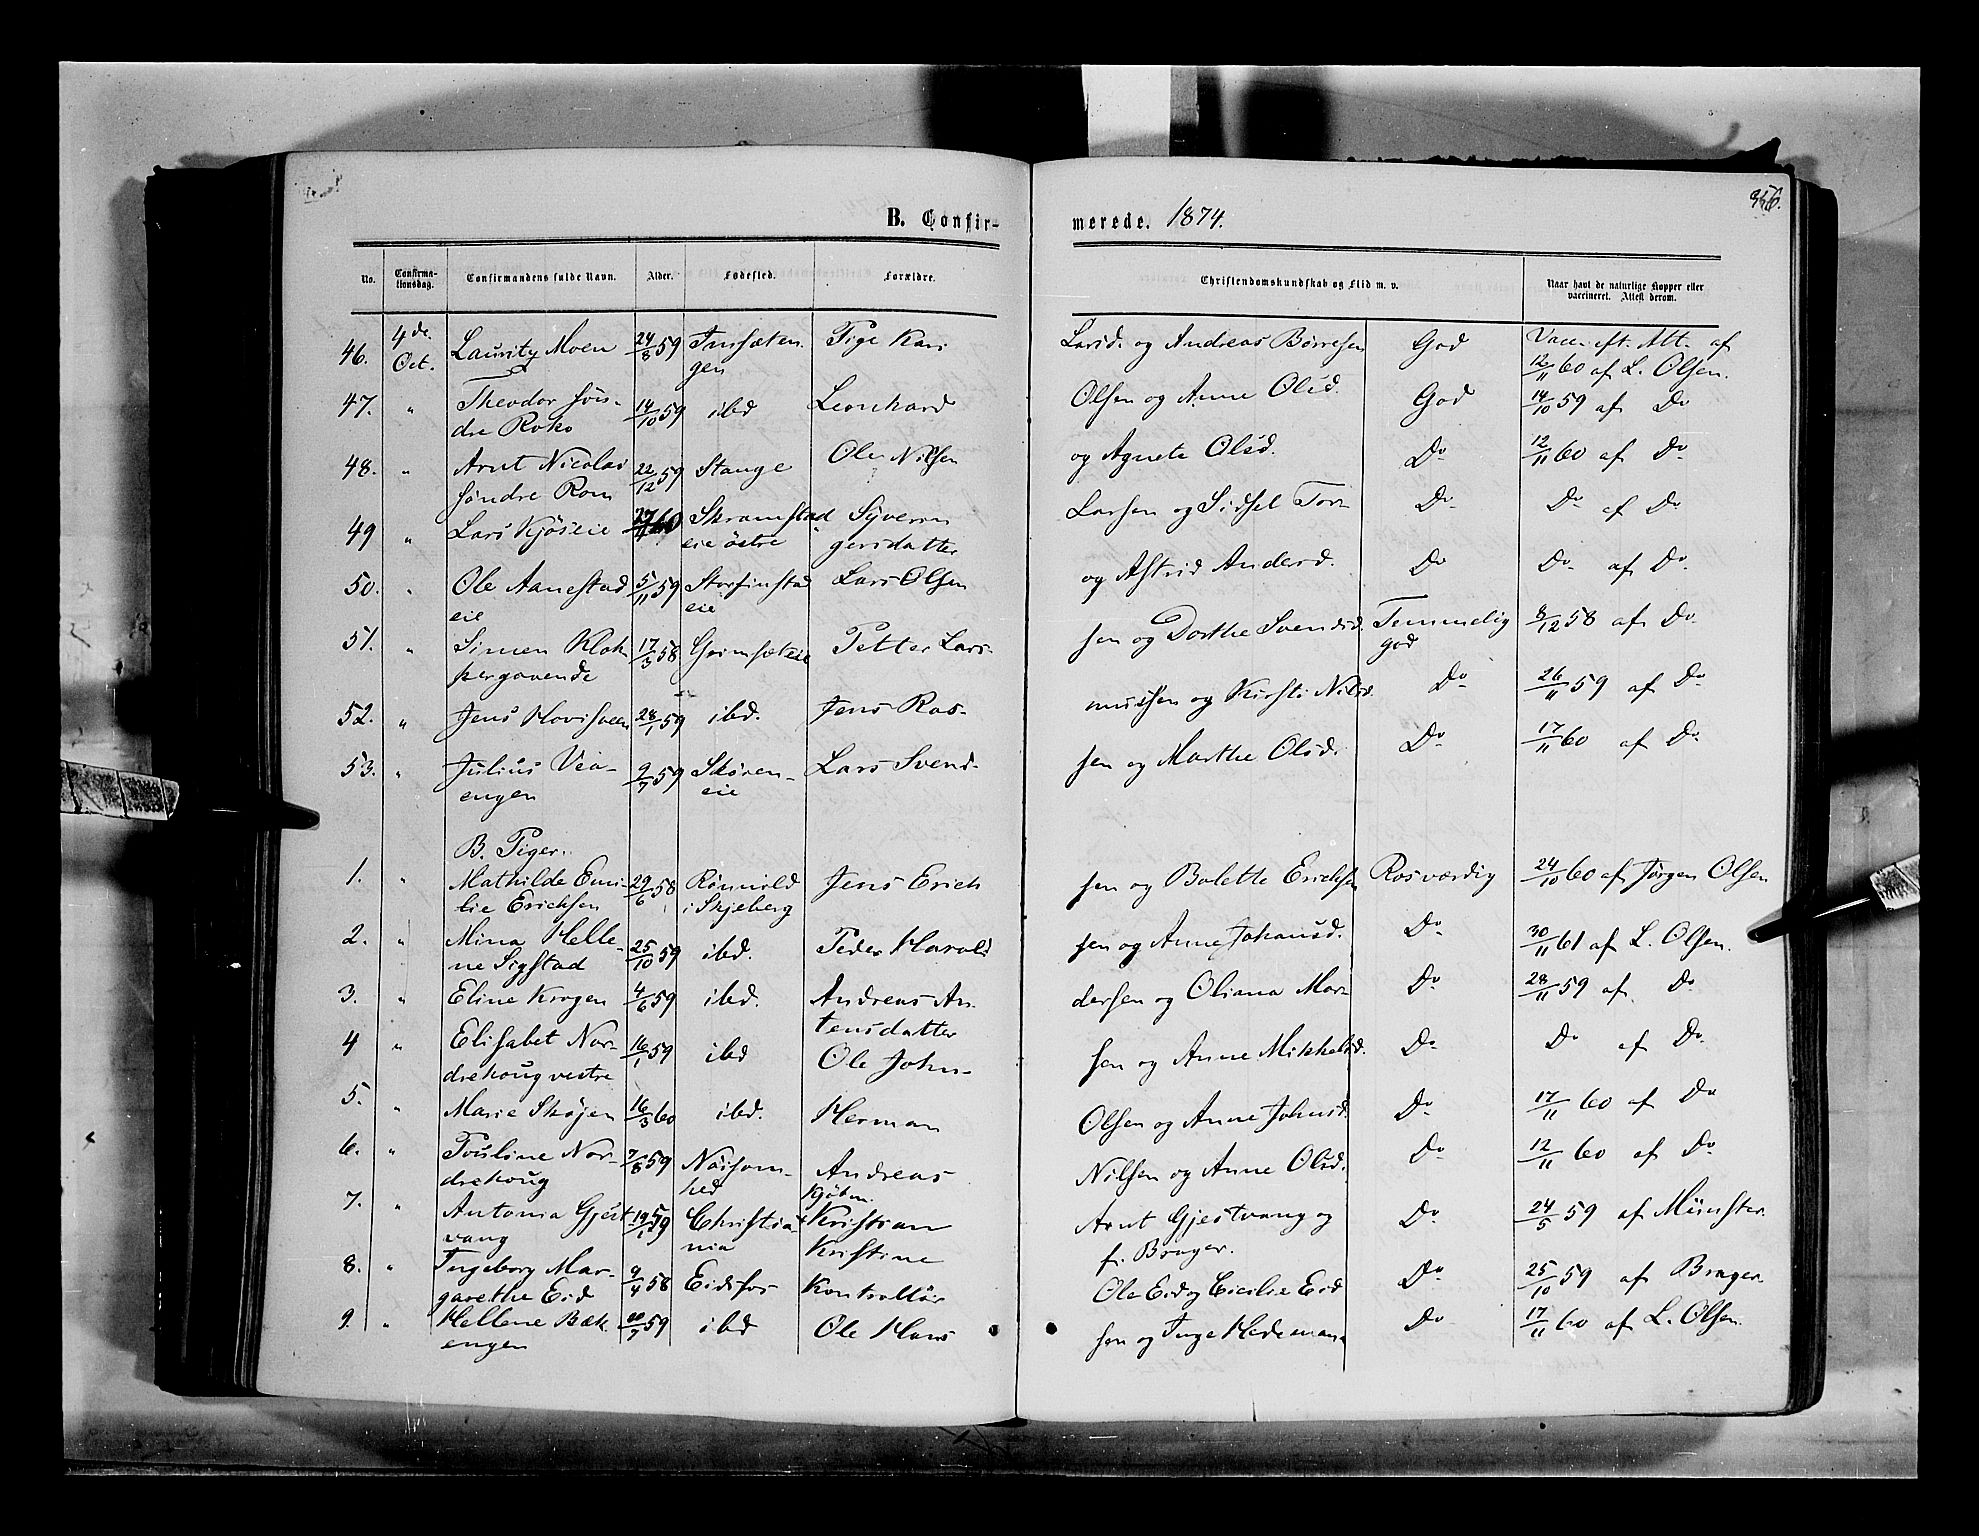 356.
B. Confirmerede. 1874.
No. Confirmationsdag. Confirmandens fulde Navn. Alder. Fødested. Forældre. Christendomskundskab og Flid m. v. Naar havt de naturlige Kopper eller vaccineret. Attest derom.
46. 4de Oct. Lauritz Moen 24/8 59 Tige Kari Larsd. og Andreas Børresen God Vacc. eft. Att. af
gen 12/11 60 af L. Olsen.
47. " Theodor søn- 14/10 59 ibd Leonhard Olsen og Anne Olsd. God 14/10 59 af Do
dre Roko
48. " Arnt Nicolai 22/12 59 Stange Ole Nilsen og Agnete Olsd. Do 12/11 60 af Do
søndre Rom
49 " Lars Kjøseie 60 Skramstad Syverin Larsen og Sidsel Tor- Do Do af Do
eie østre gersdatter
50. " Ole Aanestad 5/11 59 Lars Olsen og Astrid Andersd. Do Do af Do
eie eie
51. " Simen Klok- 17/3 58 Grimseteie Petter Lars- sen og Dorthe Svendsd. Temmelig 8/12 58 af Do
pergavende god
52. " Jens Hovisveen 28/1 59 ibd. Jens Ras- mussen og Kirsti Nilsd. Do 26/11 59 af Do
53. " Julius Vea- 9/7 59 Skøien- Lars Svend- sen og Marthe Olsd. Do 17/11 60 af Do
engen eie
B. Piger.
1. " Mathilde Emi- 29/6 58 Rømvold Jens Erich sen og Bolette Erichsen Rosværdig 24/10 60 af Jørgen Olsen
lie Erichsen i Skjeberg
2. " Mina Helle- 25/10 59 ibd. Peder Harald sen og Anne Johansd. Do 30/11 61 af L. Olsen.
ne Sigstad
3. " Eline Krogen 4/6 59 ibd. Andreas An- dersen og Oliana Mor- Do 28/11 59 af Do
tensdatter
4 " Elisabet Nor- 16/1 59 ibd Ole John- sen og Anne Mikkelsd. Do Do af Do
drehoug vestre
5. " Marie Skøjen 16/3 60 ibd. Herman Olsen og Anne Johnsd. Do 17/11 60 af Do
6. " Pouline Nor- 7/8 59 Nøisom- Andreas Nilsen og Anne Olsd. Do 12/11 60 af Do
drehoug hed
7. " Antonia Gjest- 19/1 59 Christia- Kjøbm. Kristian Arnt Gjestvang og Do 24/5 59 af Münster
vang nia Kristine f. Brager.
8. " Ingeborg Mar- 9/4 58 Eidsfos Kontrollør Ole Eid og Cicilie Eid Do 25/10 59 af Brager.
garethe Eid
9. " Hellene Bæk- 59 ibd Ole Hans sen og Inge Hedemann Do 17/11 60 af L. Olsen.
engen